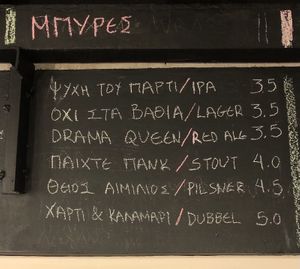 ΜΠΥΡΕΣ
ΨΥΧΗ ΤΟΥ ΠΑΡΤΙ/IPA 3.5
ΟΧΙ ΣΤΑ ΒΑΘΙΑ/LAGER 3.5
DRAMA QUEEN/RED ALE 3.5
ΠΑΙΧΤΕ ΠΑΝΚ/STOUT 4.0
ΘΕΙΟΣ ΑΙΜΙΛΙΟΣ/PILSNER 4.5
ΧΑΡΤΙ & ΚΑΛΑΜΑΡΙ/DUBBEL 5.0